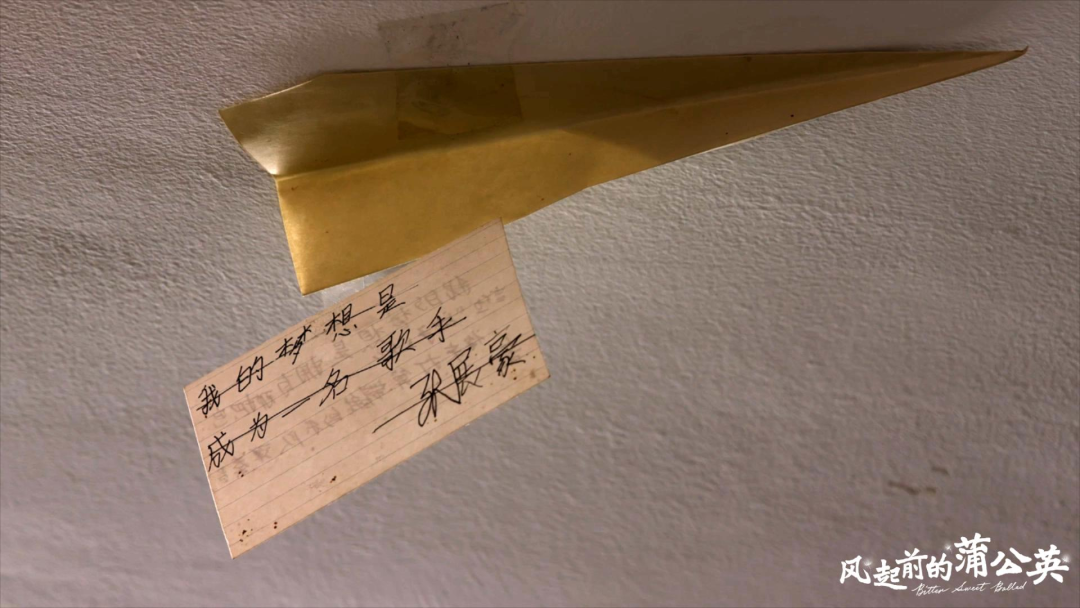 我的梦想是
成为一名歌手
—张展豪
风起前的蒲公英
Bitter Sweet Ballad